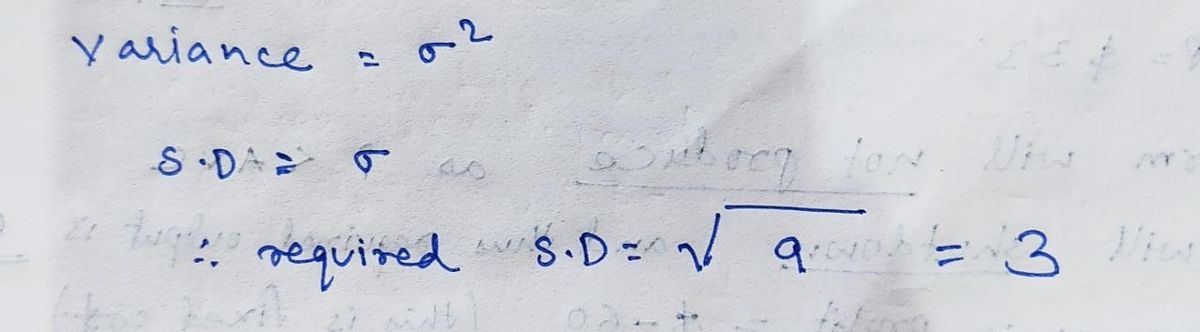 Variance = σ²
S.D = σ
∴ required S.D = √9 = 3